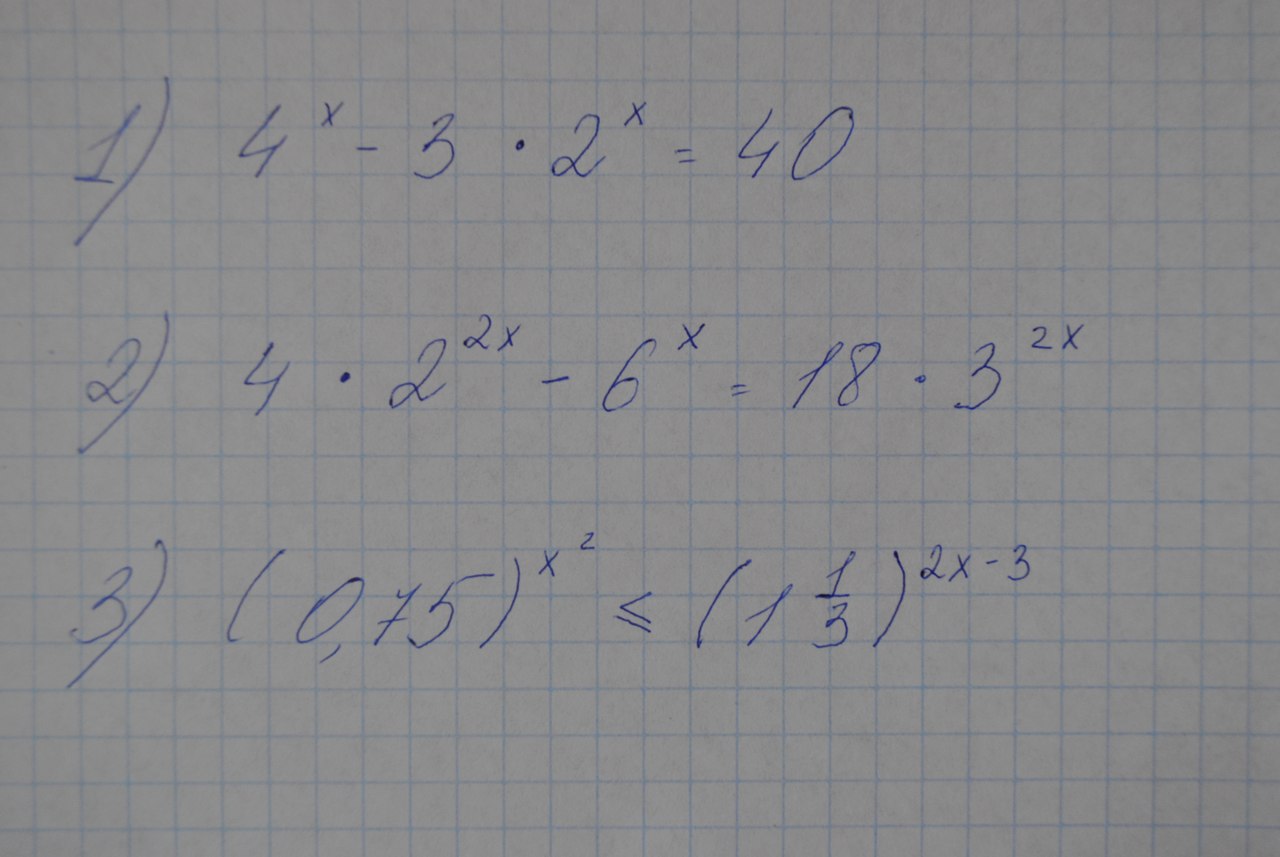 1) 4^x - 3 · 2^x = 40
2) 4 · 2^2x - 6^x = 18 · 3^2x
3) (0,75)^x^2 ≤ (1 1/3)^2x-3